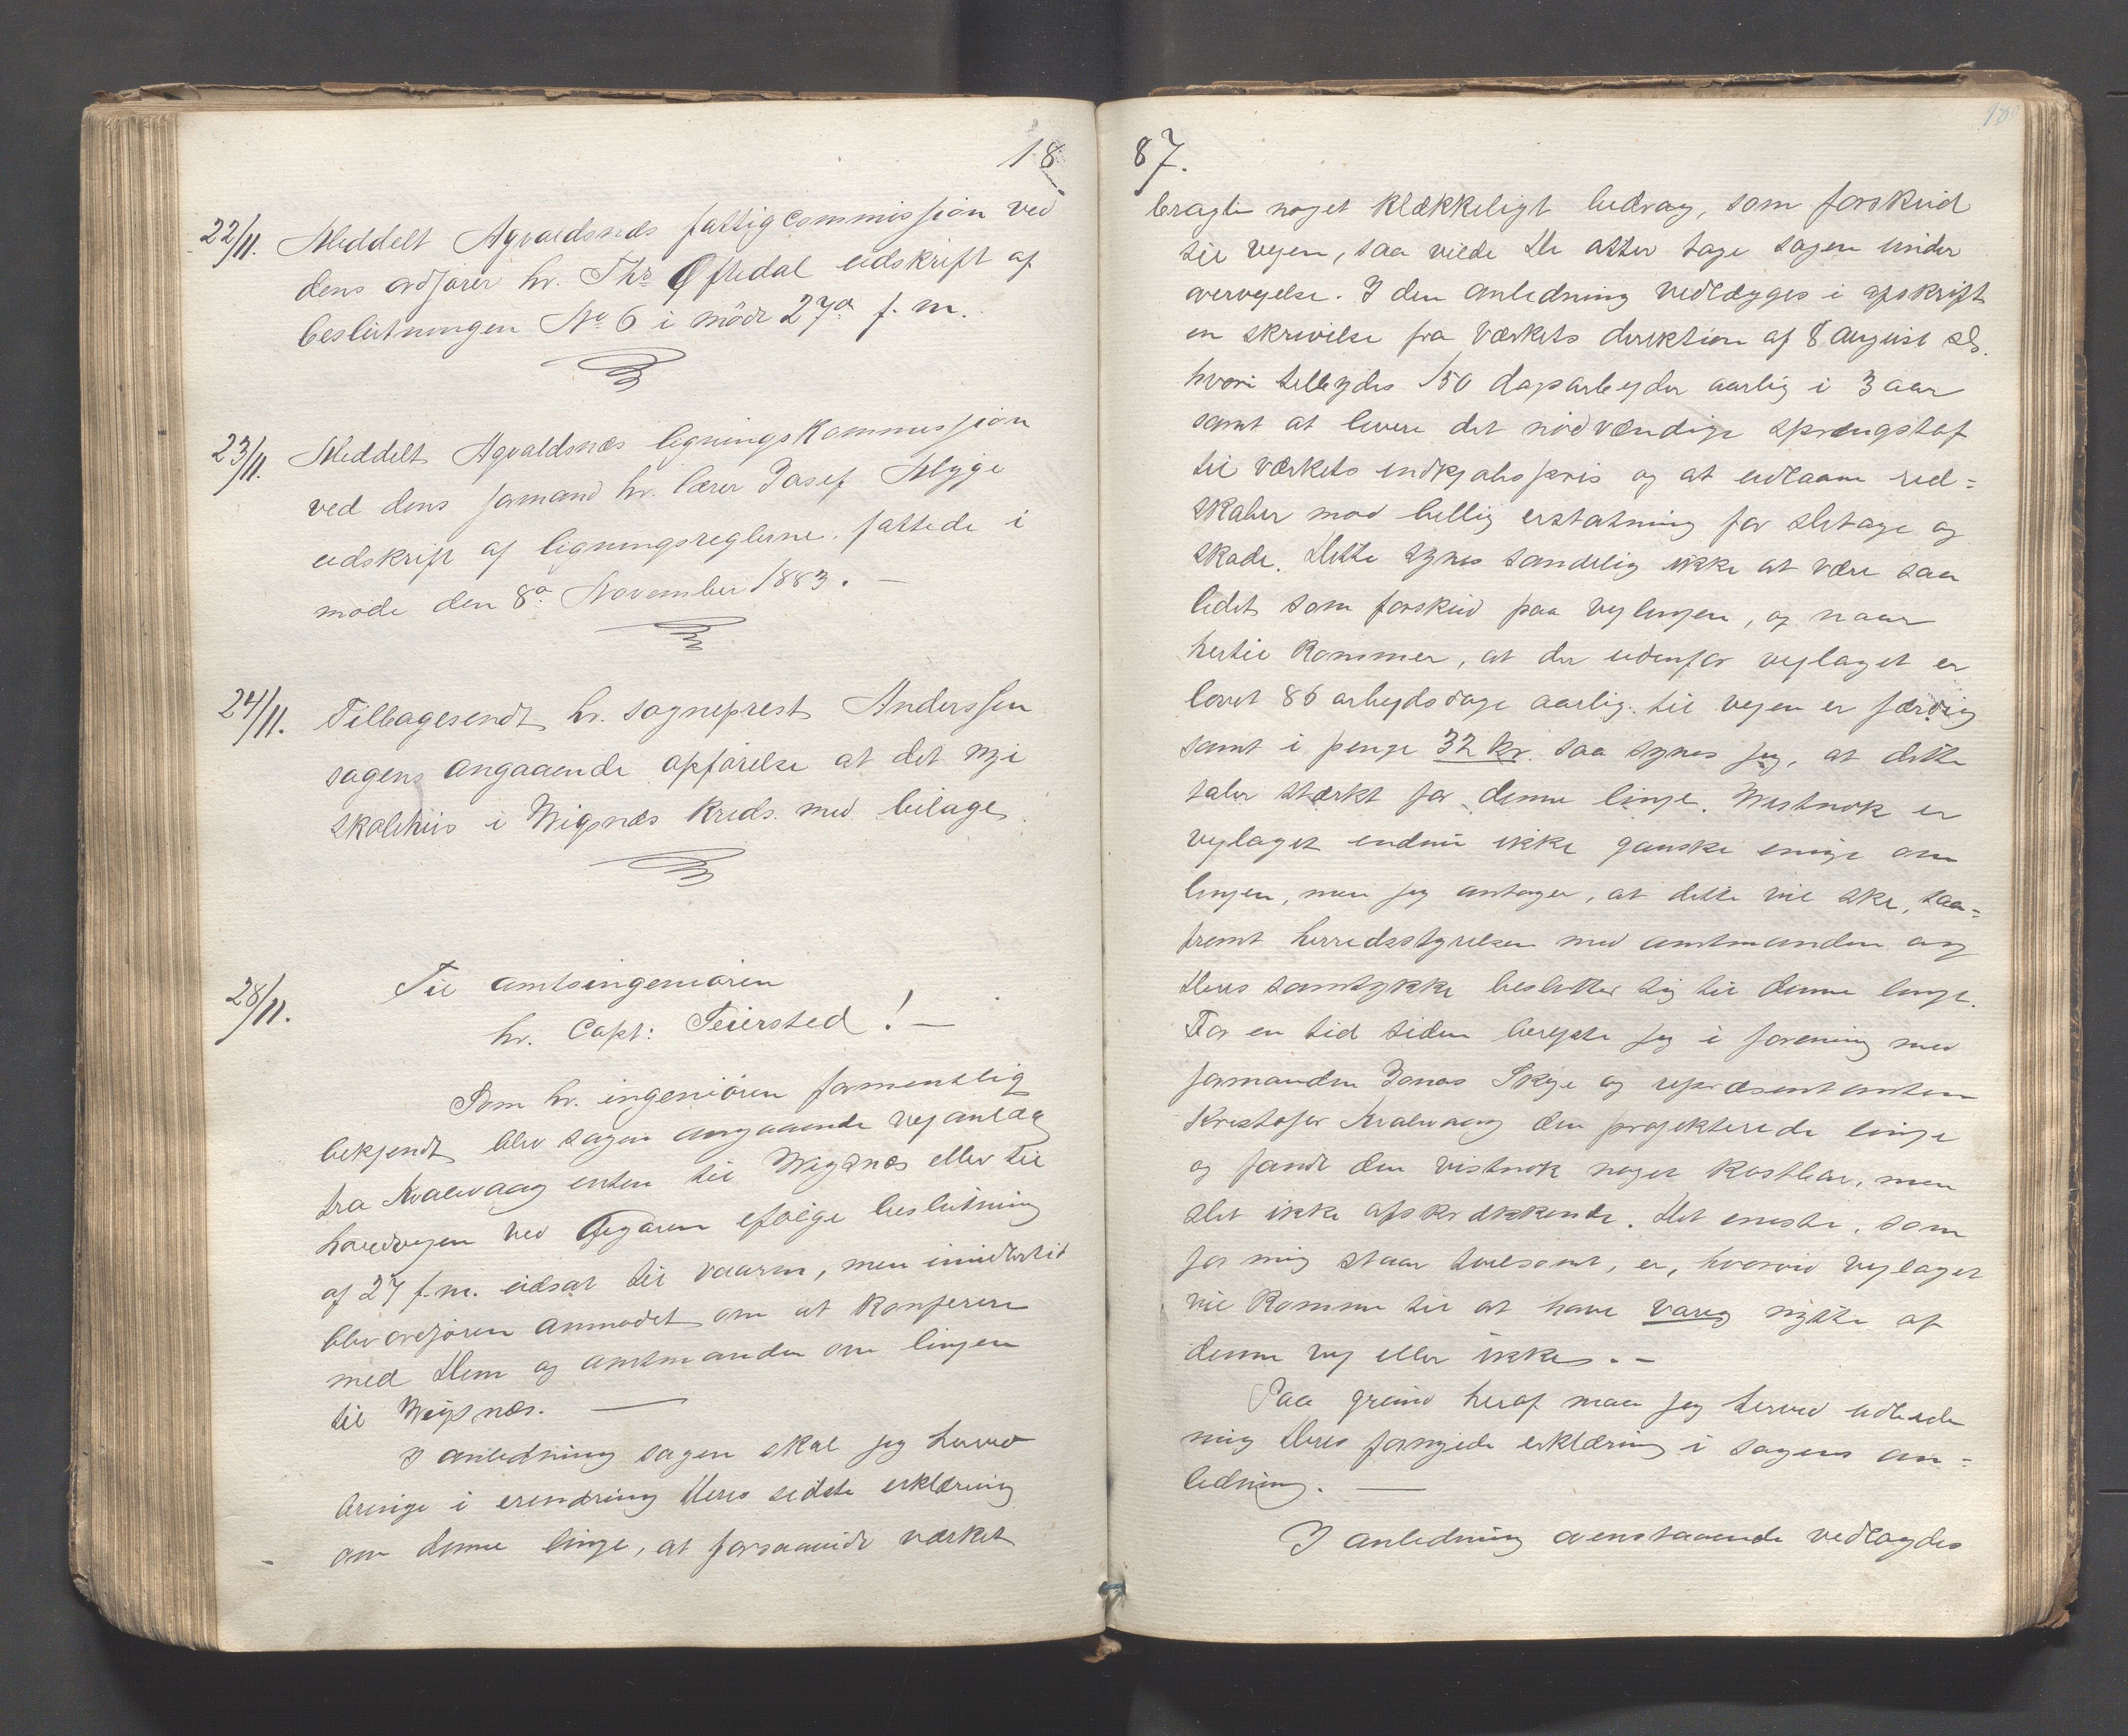 18
22/11. Meddelt Agvaldsnæs fattigcommission ved
dens ordfører hr. Ths Oftedal udskrift af
beslutningen No 6 i møde 27de f. m.
23/11. Meddelt Agvaldsnæs ligningskommission
ved dens formand hr. lærer Josef Mygge
udskrift af ligningsreglerne, fattede i
møde den 8de November 1883. —
24/11. Tilbagesendt hr. sogneprest Anderssen
sagens angaaende opførelse at det nye
skolehus i Wigsnæs kreds med bilage
28/11. Til amtsingeniøren
hr. Capt: Feiersted! —
Som hr. ingeniøren formentlig
bekjendt blev sagen angaaende vejanlæg
fra Kvalevaag enten til Wigsnæs eller til
hovedvejen ved Øygaren ifølge beslutning
af 27 f. m. udsat til vaaren, men imidlertid
blev ordføren anmodet om at konferere
med Dem og amtmanden om linjen
til Wigsnæs. —
I anledning sagen skal jeg herved
bringe i erendring Deres sidste erklæring
om denne linje, at forsaavidt værket
87.
bragte noget klækkeligt bidrag, som forskud
til vejen, saa vilde De atter tage sagen under
overvejelse. I den anledning vedlægges i afskrift
en skrivelse fra Værkets direktion af 8 august ds.
hvori tilbydes 150 dagsarbejder aarlig i 3 aar
samt at levere det nødvændige sprængstof
til værkets indkjøbspris og at udlaane red=
skaber mod billig erstatning for slitage og
skade. Dette synes sandelig ikke at være saa
lidet som forskud paa vejlinjen, og naar
hertil kommer, at der udenfor vejlaget er
lovet 86 arbejdsdage aarlig til vejen er færdig
samt i penge 32 kr. saa synes jeg, at dette
taler stærkt for denne linje. Wistnok er
vejlaget endnu ikke ganske enige om
linjen, men jeg antager, at dette vil ske, saa=
fremt herredsstyrelsen med amtmanden og
Deres samtykke beslutter sig til denne linje.
For en tid siden berejste jeg i forening med
formanden Jonas Skeje og repræsentanten
Kristofer Kvalevaag den projekterede linje
og fandt den vistnok noget kostbar, men
slet ikke afskrækkende. Det eneste, som
for mig staar tvilsomt, er, hvorvid vejlaget
vil komme til at have varig nytte af
denne vej eller ikke. —
Paa grund heraf maa jeg herved udbede
mig Deres fornyede erklæring i sagens an=
ledning. —
I anledning ovenstaaende vedlagdes